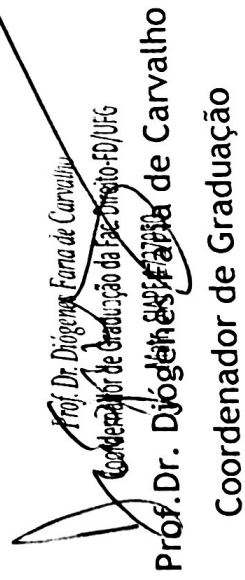 Prof. Dr. Diógenes Faria de Carvalho
Coordenador de Graduação da Fac. Direito-FD/UFG
Prof.Dr. Diógenes Faria de Carvalho
Coordenador de Graduação